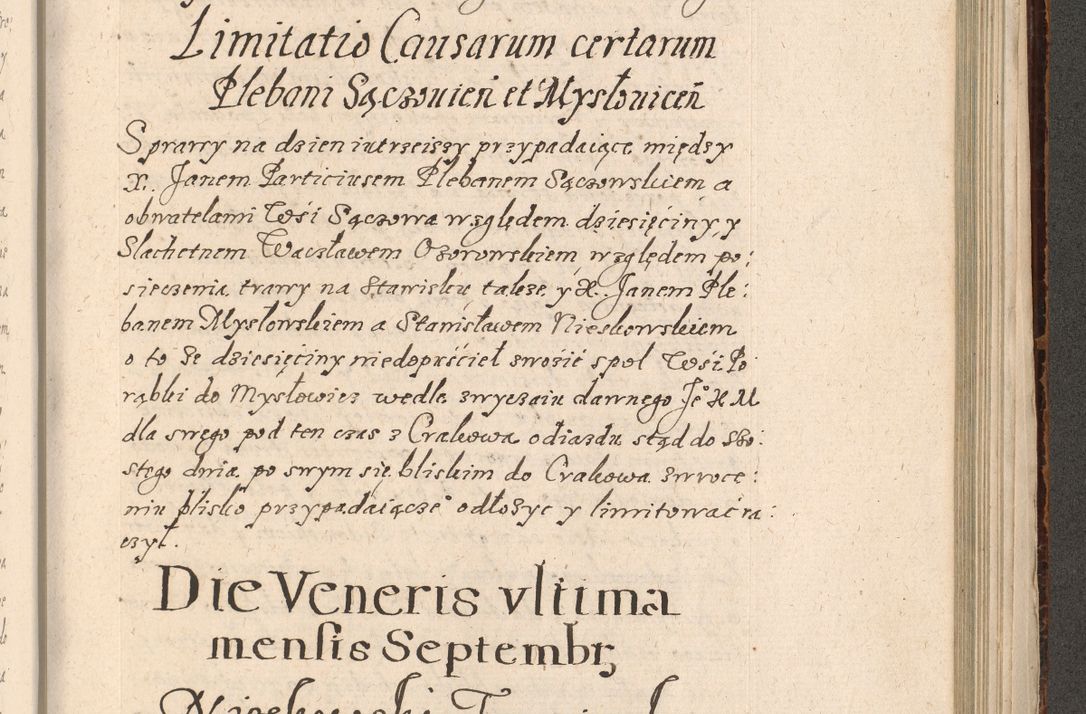 Limitatio Causarum certarum
Plebani Sączouień et Mysłouiceñ
Sprawy na dzien iutrzeiszy przypadaiące między
X. Janem Particiusem Plebanem Sączowskiem a
obwatelami Wśi Sączowa względem dziesięciny, y
Slachetnem Wacławem Ozorowskiem względem po:
sieczenia trawy na Stawisku także, y X. Janem Ple:
banem Mysłowskiem a Stanisławem Nieskowskiem
o to że dziesięciny niedopuśćieł zwoźić z pol Wśi Po
rąbki do Mysłowicz wedle zwyczaiu dawnego Je° X M
dla swego pod ten czas z Crakowa odiazdu stąd do Szo:
stego dnia po swym się bliskim do Crakowa zwroce:
niu blisko przypadaiącze° odłożyc y limitować ra:
czył.
Die Veneris vltima
mensis Septembr;